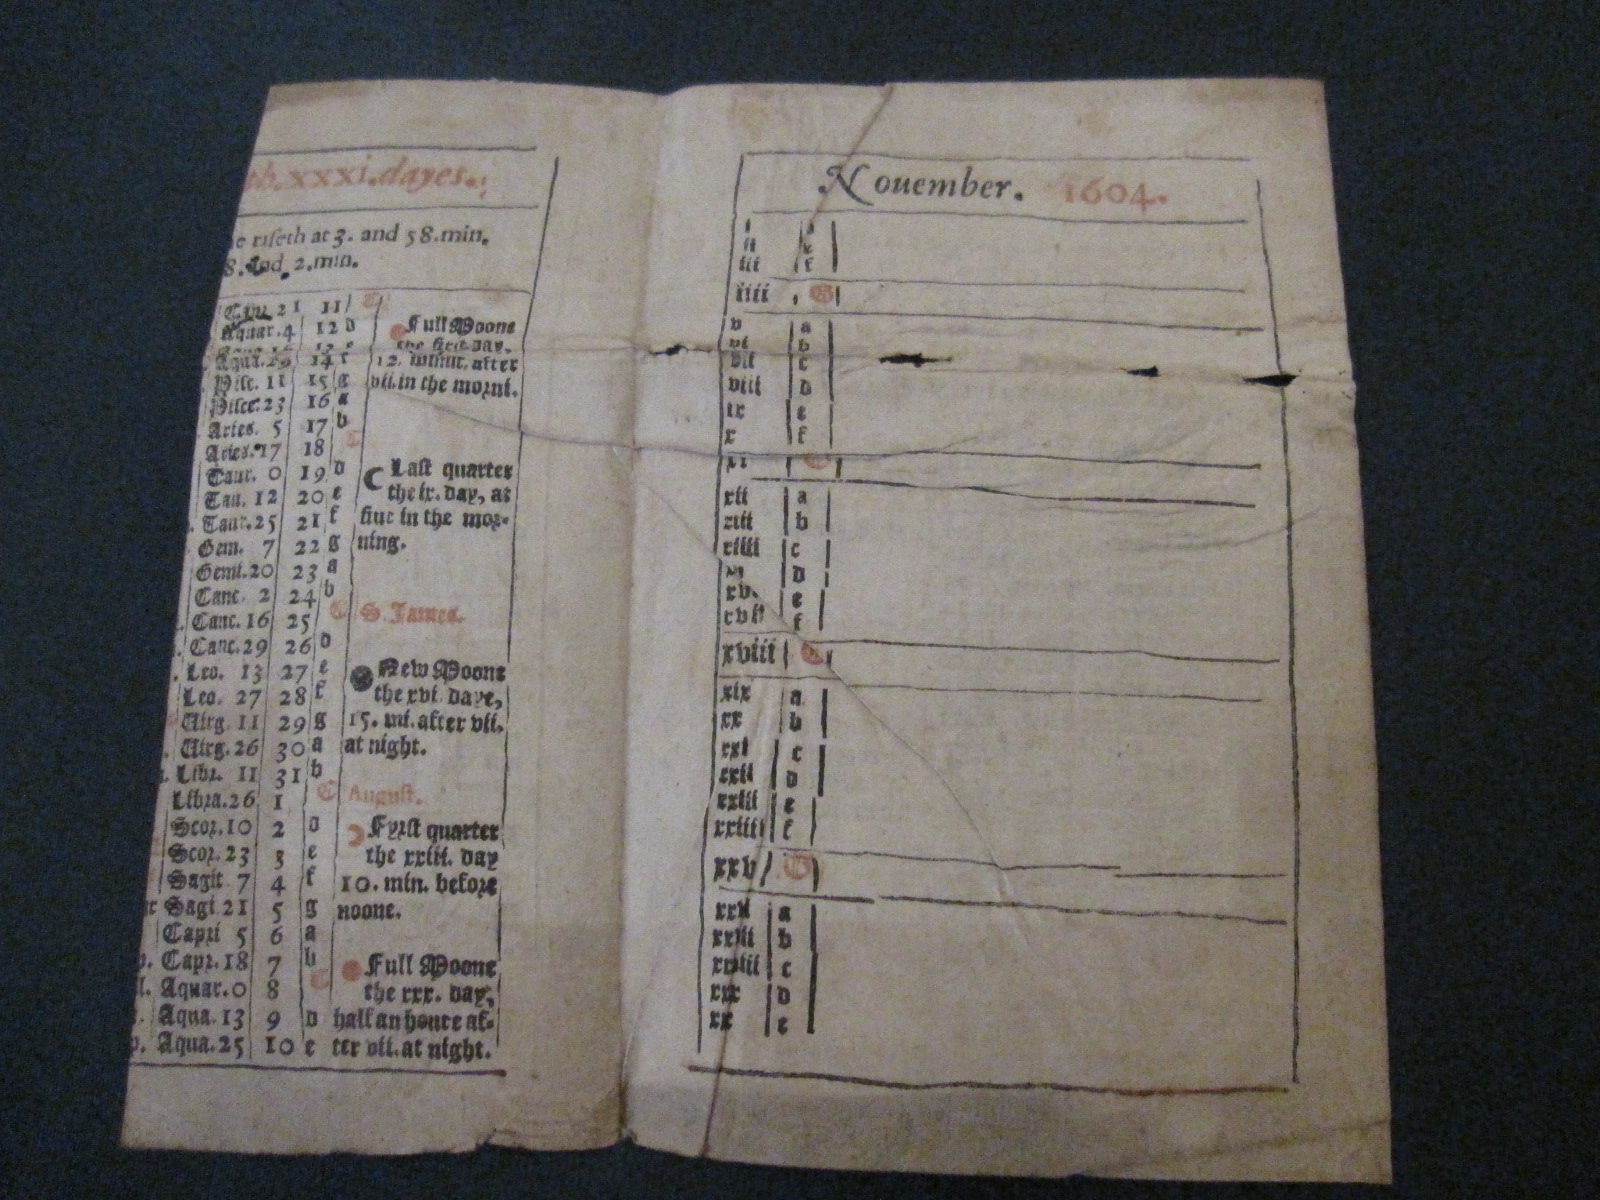 xxxi.dayes.
riseth at 3. and 58.min.
8. and 2.min.
21 11 C
Aquar.4 12 d Full Moone
the first day,
Aqua. 14 f 12. minut. after
Pisc. 11 15 g vii. in the morni.
Pisce.23 16 a
Aries. 5 17 b
Aries.17 18 C
Taur. 0 19 d Last quarter
Tau. 12 20 e the ix. day, at
Taur.25 21 f fiue in the mor-
Gem. 7 22 g ning.
Gemi.20 23 a
Canc. 2 24 b
Canc. 16 25 C S. James.
Canc.29 26 d
Leo. 13 27 e New Moone
Leo. 27 28 f the xvi. daye,
Uirg. 11 29 g 15. mi. after vii.
Uirg. 26 30 a at night.
Libr. 11 31 b
Libra.26 1 C August.
Scor.10 2 d Fyrst quarter
Scor. 23 3 e the xxiii. day
Sagit 7 4 f 10. min. before
Sagi 21 5 g noone.
Capri 5 6 a
Capr.18 7 b Full Moone
Aquar.0 8 C the xxx. day,
Aqua. 13 9 d half an houre af-
Aqua.25 10 e ter vii. at night.
Nouember. 1604.
i
ii e
iii f
iiii G
v a
vi b
vii c
viii d
ix e
x f
xi G
xii a
xiii b
xiiii c
d
xvi e
xvii f
xviii G
xix a
xx b
xxi c
xxii d
xxiii e
xxiiii f
xxv G
xxvi a
xxvii b
xxviii c
xxix d
xx e